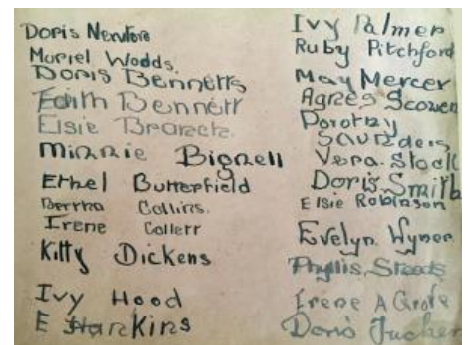 Doris Newton
Muriel Wodds.
Doris Bennetts
Edith Bennett
Elsie
Minnie Bignell
Ethel Butterfield
Bertha Collins.
Irene Collett
Kitty Dickens
Ivy Hood
E Hankins
Ivy Palmer
Ruby Pitchford
May Mercer
Agnes Scowen
Dorothy
Saunders
Vera. Stock
Doris Smith
Elsie Robinson
Evelyn Wyner
Phyllis
Irene A
Doris Tucker